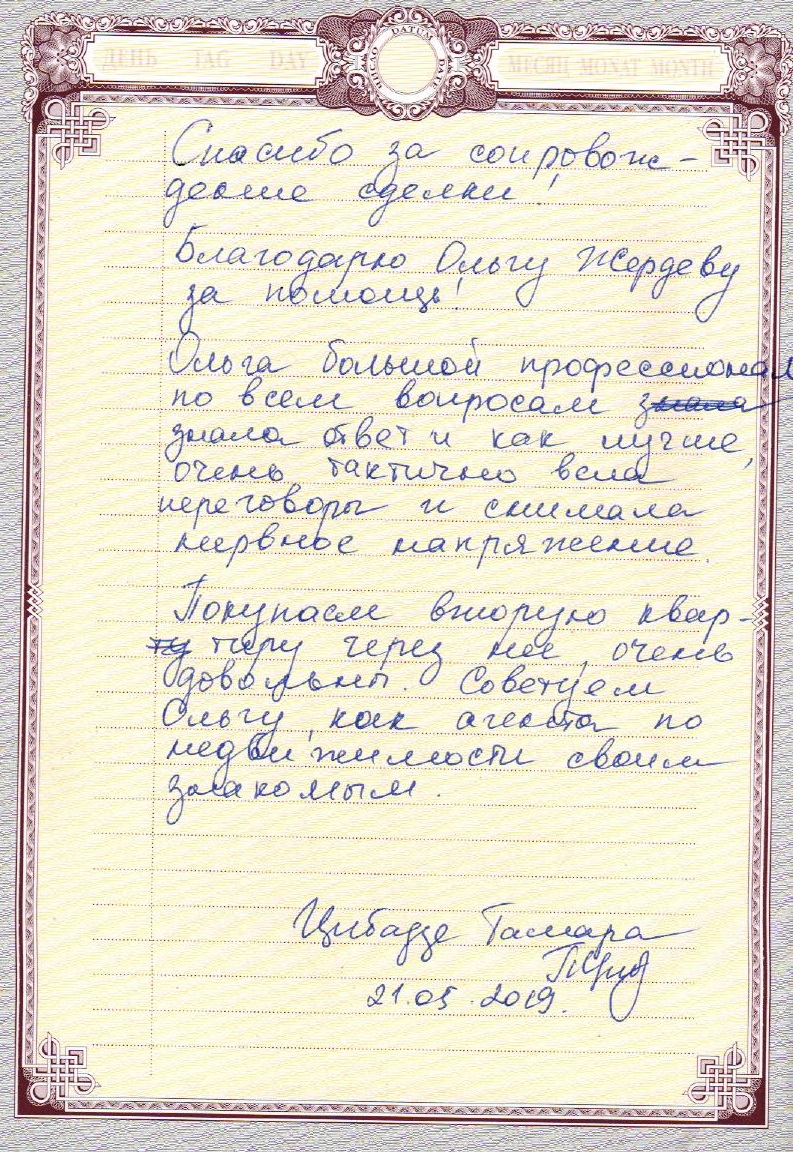 ДЕНЬ TAG DAY
DATUM
МЕСЯЦ MONAT MONTH
Спасибо за сопровож-
дение сделки!
Благодарю Ольгу Жердеву
за помощь!
Ольга большой профессионал
по всем вопросам знала
знала ответ и как лучше,
очень тактично вела
переговоры и снимала
нервное напряжение.
Покупаем вторую квар-
ту тиру через нее, очень
довольны. Советуем
Ольгу, как агента по
недвижимости своим
знакомым.
Цибадзе Тамара
21.05.2019.